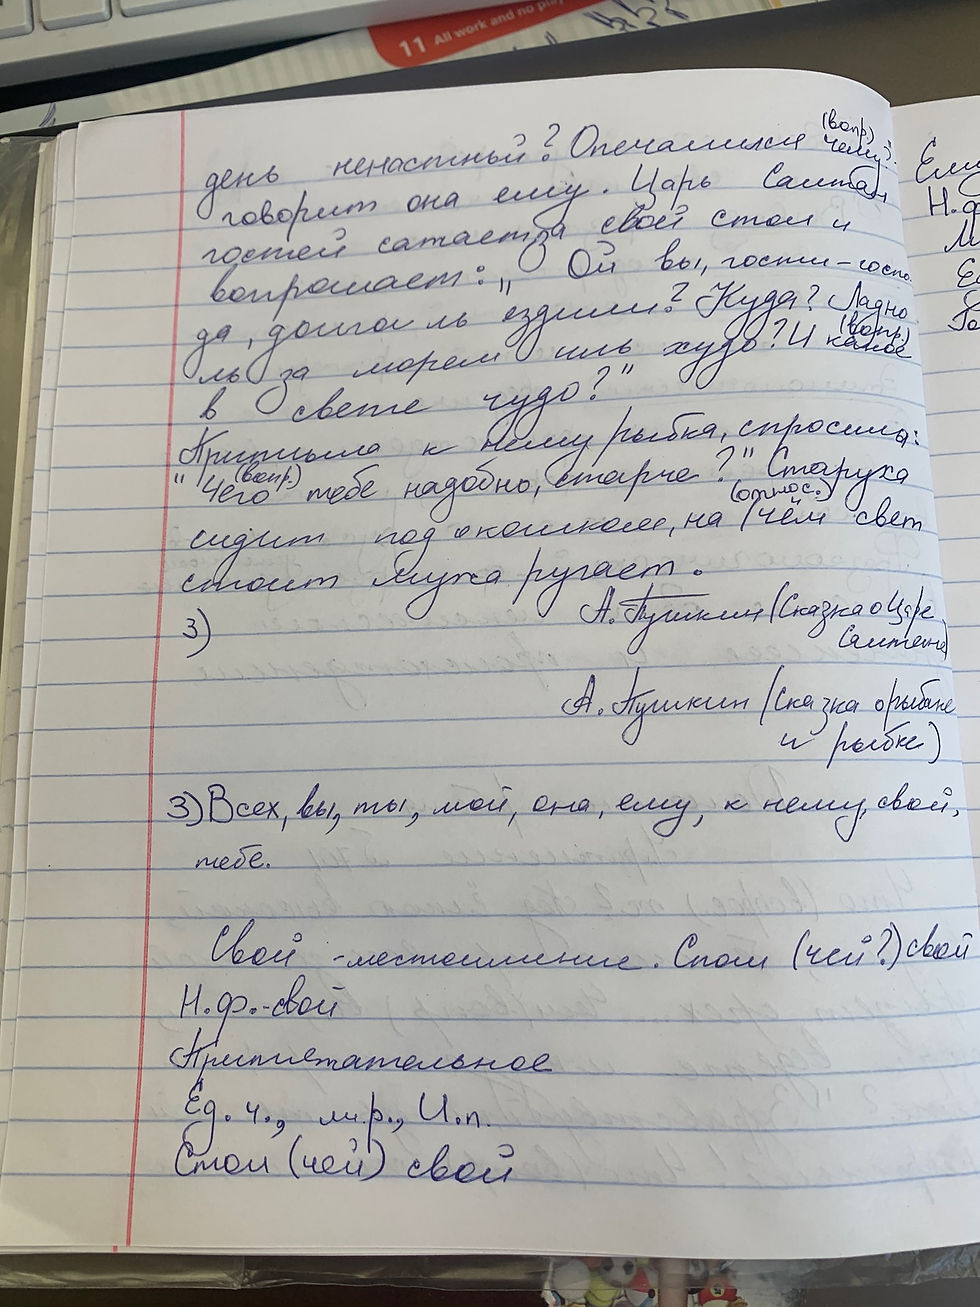 11 All work and no pl
(вопр.)
день ненастный? Опечалился чему?
говорит она ему. Царь Салтан
гостей сажает за свой стол и
вопрошает: „Ой вы, гости-госпо
да, долго ль ездили? Куда? Ладно
(вопр.)
ль за морем иль худо? И какое
в свете чудо?"
Приплыла к нему рыбка, спросила:
(вопр.)
"Чего тебе надобно, старче?" Старуха
(относ.)
сидит под окошком, на чём свет
стоит мужа ругает.
3) А. Пушкин (Сказка о Царе
Салтане)
А. Пушкин (Сказка о рыбаке
и рыбке)
3) Всех, вы, ты, мой, она, ему, к нему, свой,
тебе.
Свой - местоимение. Стол (чей?) свой
Н.ф.-свой
Притяжательное
Ед. ч., м.р., И.п.
Стол (чей) свой
Н.ф